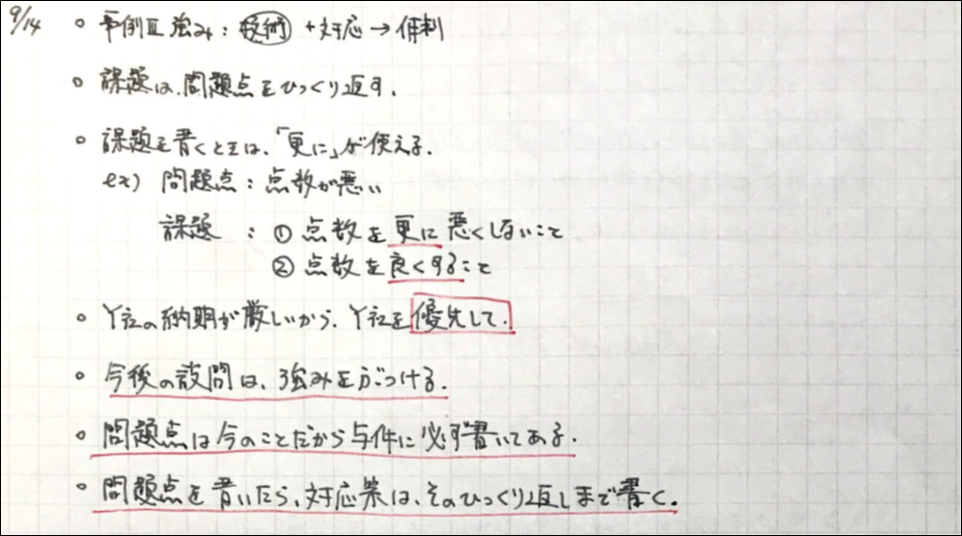 9/14 ○ 事例Ⅲ 強み:技術+対応→体制
○ 課題は、問題点をひっくり返す。
○ 課題を書くときは、「更に」が使える。
ex) 問題点:点数が悪い
課題 :① 点数を更に悪くしないこと
② 点数を良くすること
○ Y社の納期が厳しいから、Y社を優先して.
○ 今後の設問は、強みをぶつける.
○ 問題点は今のことだから与件に必ず書いてある.
○ 問題点を書いたら、対応策は、そのひっくり返しまで書く.